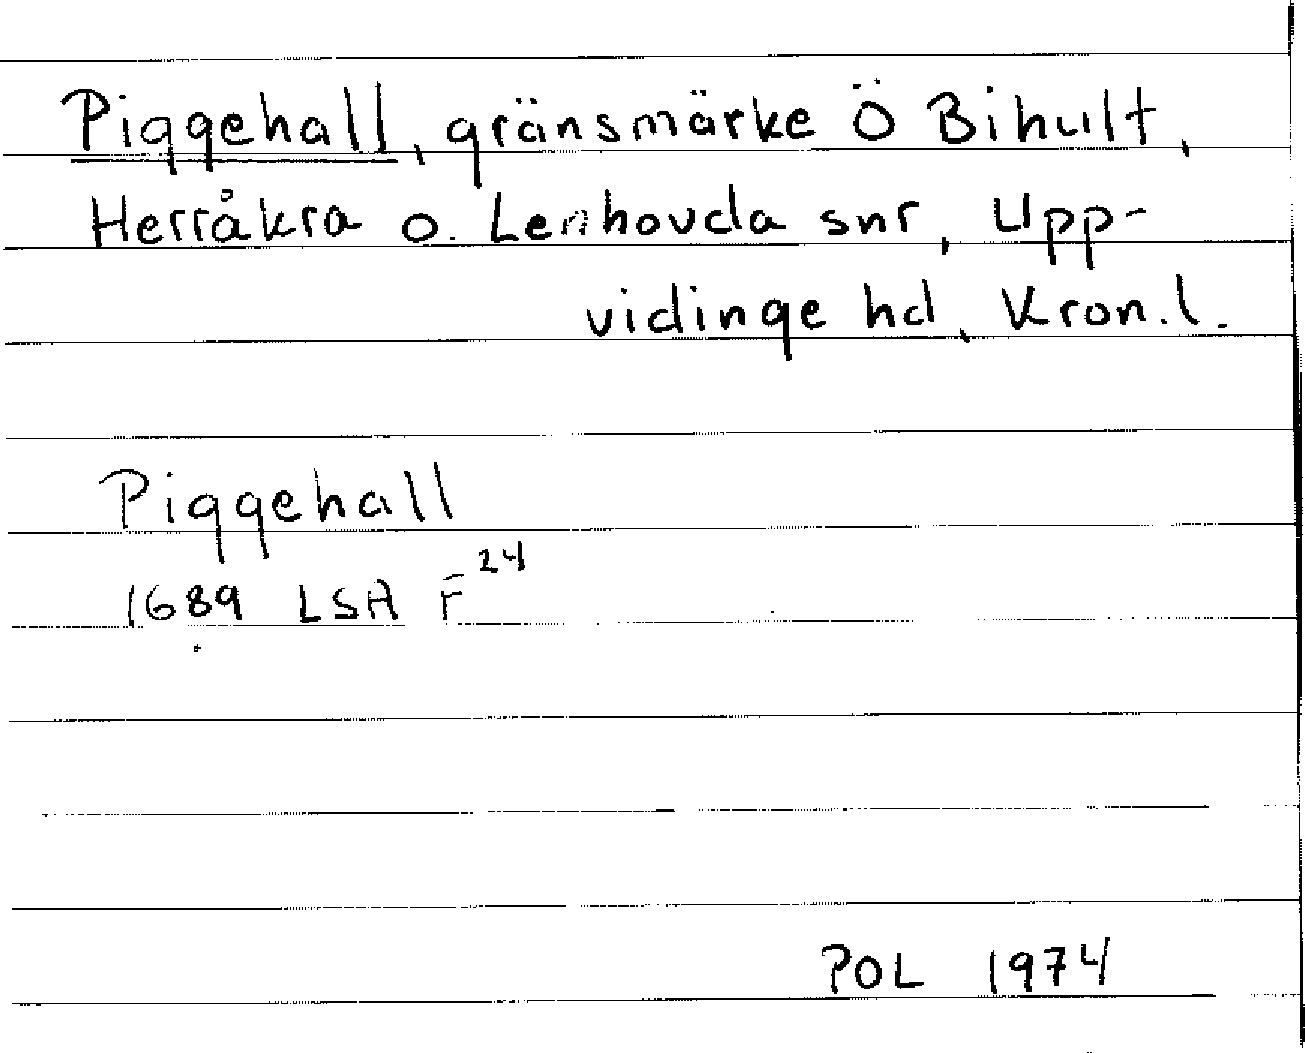 Piggehall, gränsmärke Ö Bihult,
Herråkra o. Lenhovda snr, Upp-
vidinge hd, Kron.l.
Piggehall
1689 LSA F 24
POL 1974